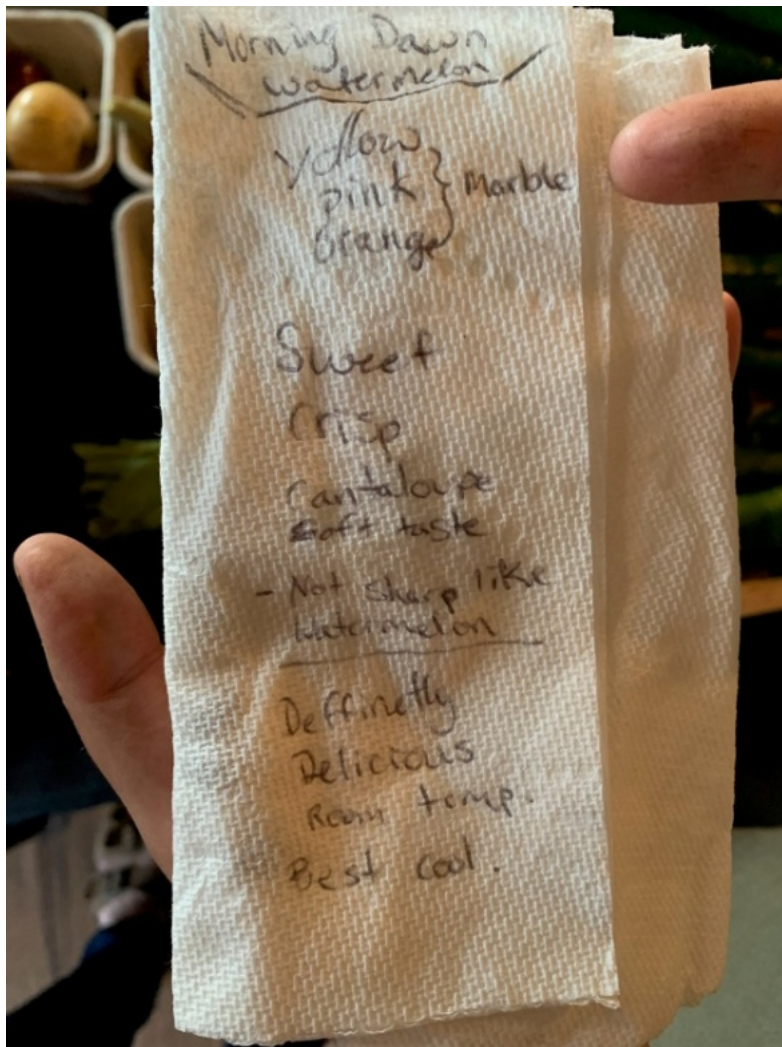 Morning Dawn
Watermelon
Yellow
pink } Marble
Orange
Sweet
Crisp
Cantaloupe
Soft taste
- Not sharp like
Watermelon
Deffinetly
Delicious
Room temp.
Best cool.